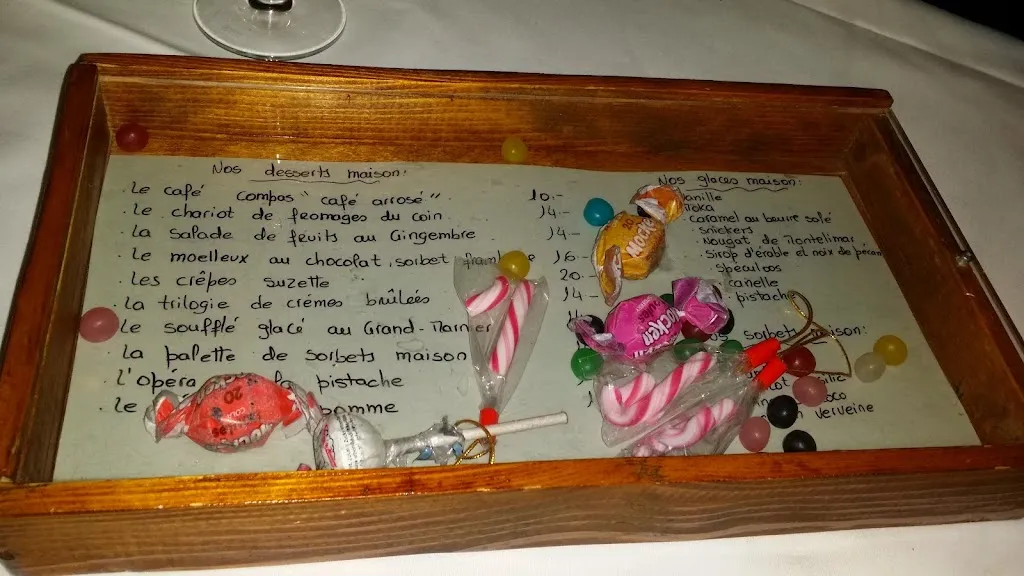 Nos desserts maison:
. Le café compos "café arrosé". 10.-
. Le chariot de fromages du coin 14.-
. La salade de fruits au Gingembre 14.-
. Le moelleux au chocolat, sorbet 16.-
. Les crêpes suzette 20.-
. La trilogie de crèmes brûlées 14.-
. Le soufflé glacé au Grand-Marnier
. La palette de sorbets maison
. L'opéra pistache
. Le pomme
Nos glaces maison:
Vanille
Moka
Caramel au beurre salé
. Snickers
. Nougat de Montelimar
. Sirop d'érable et noix de pécan
. Speculoos
. Canelle
. pistache
sorbets maison:
coco
verveine
20
Mocken